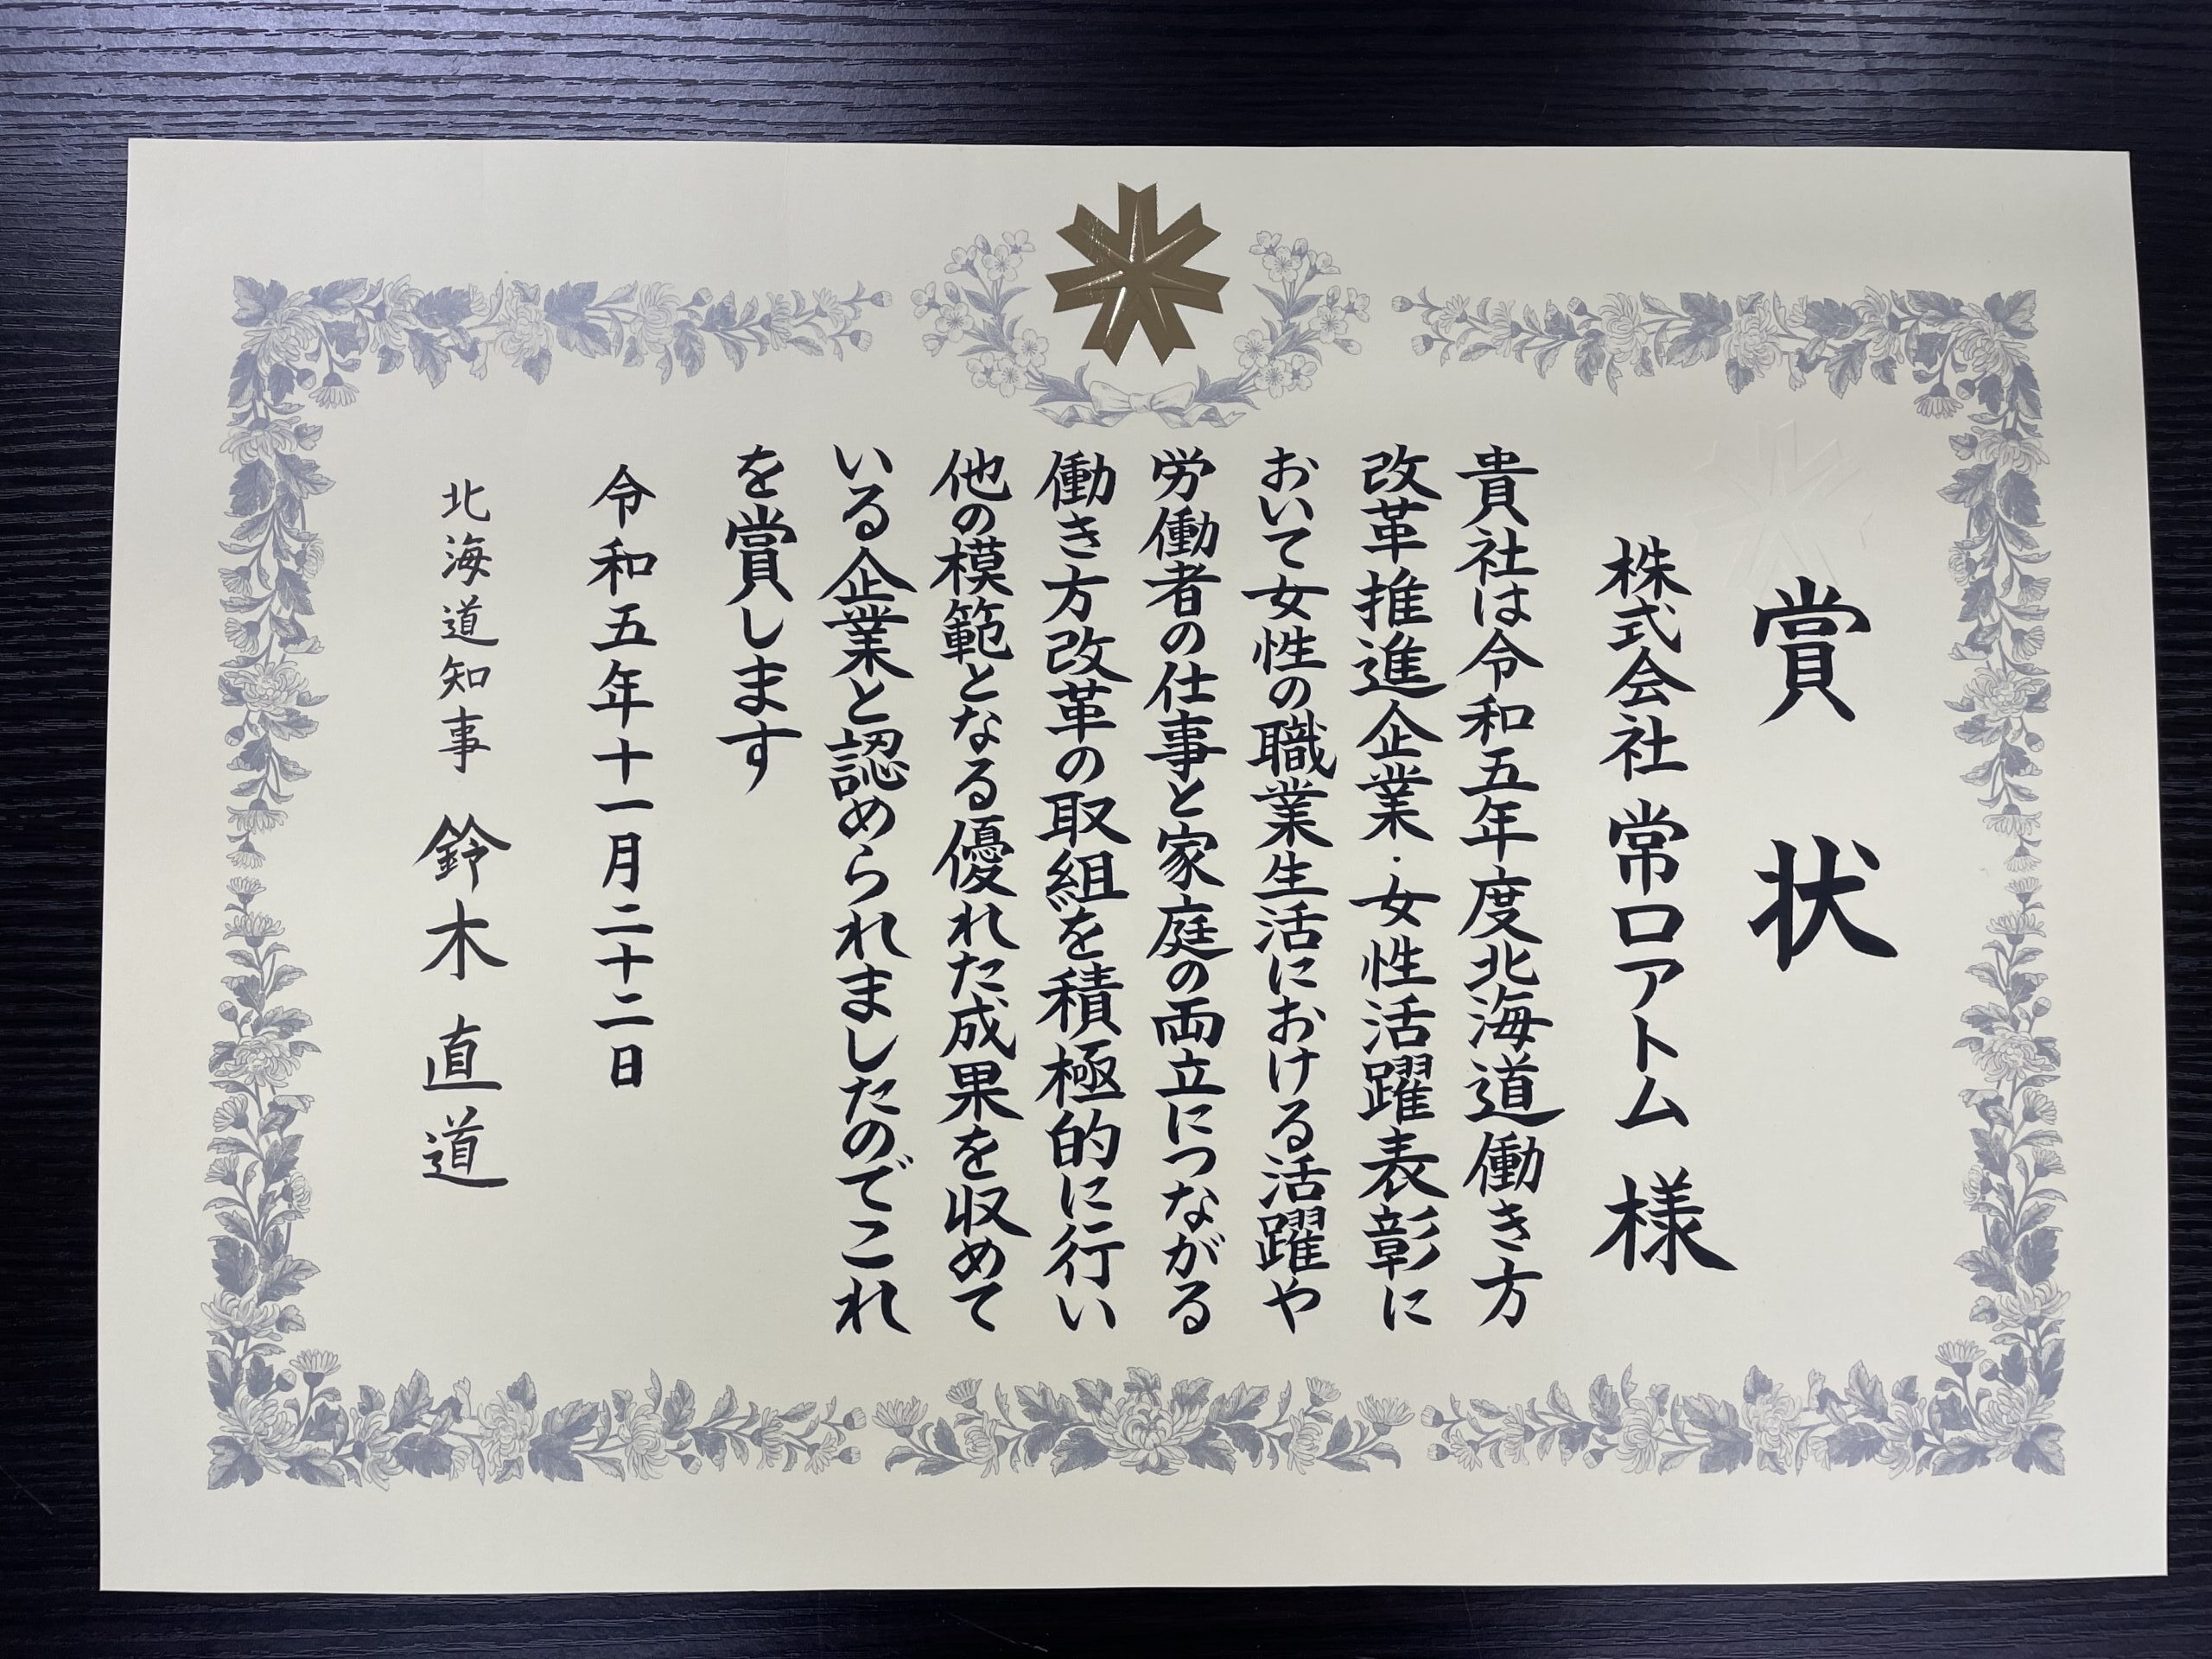 賞状
株式会社 常口アトム 様
貴社は令和五年度北海道働き方
改革推進企業・女性活躍表彰に
おいて女性の職業生活における活躍や
労働者の仕事と家庭の両立につながる
働き方改革の取組を積極的に行い
他の模範となる優れた成果を収めて
いる企業と認められましたのでこれ
を賞します
令和五年十一月二十二日
北海道知事 鈴木直道